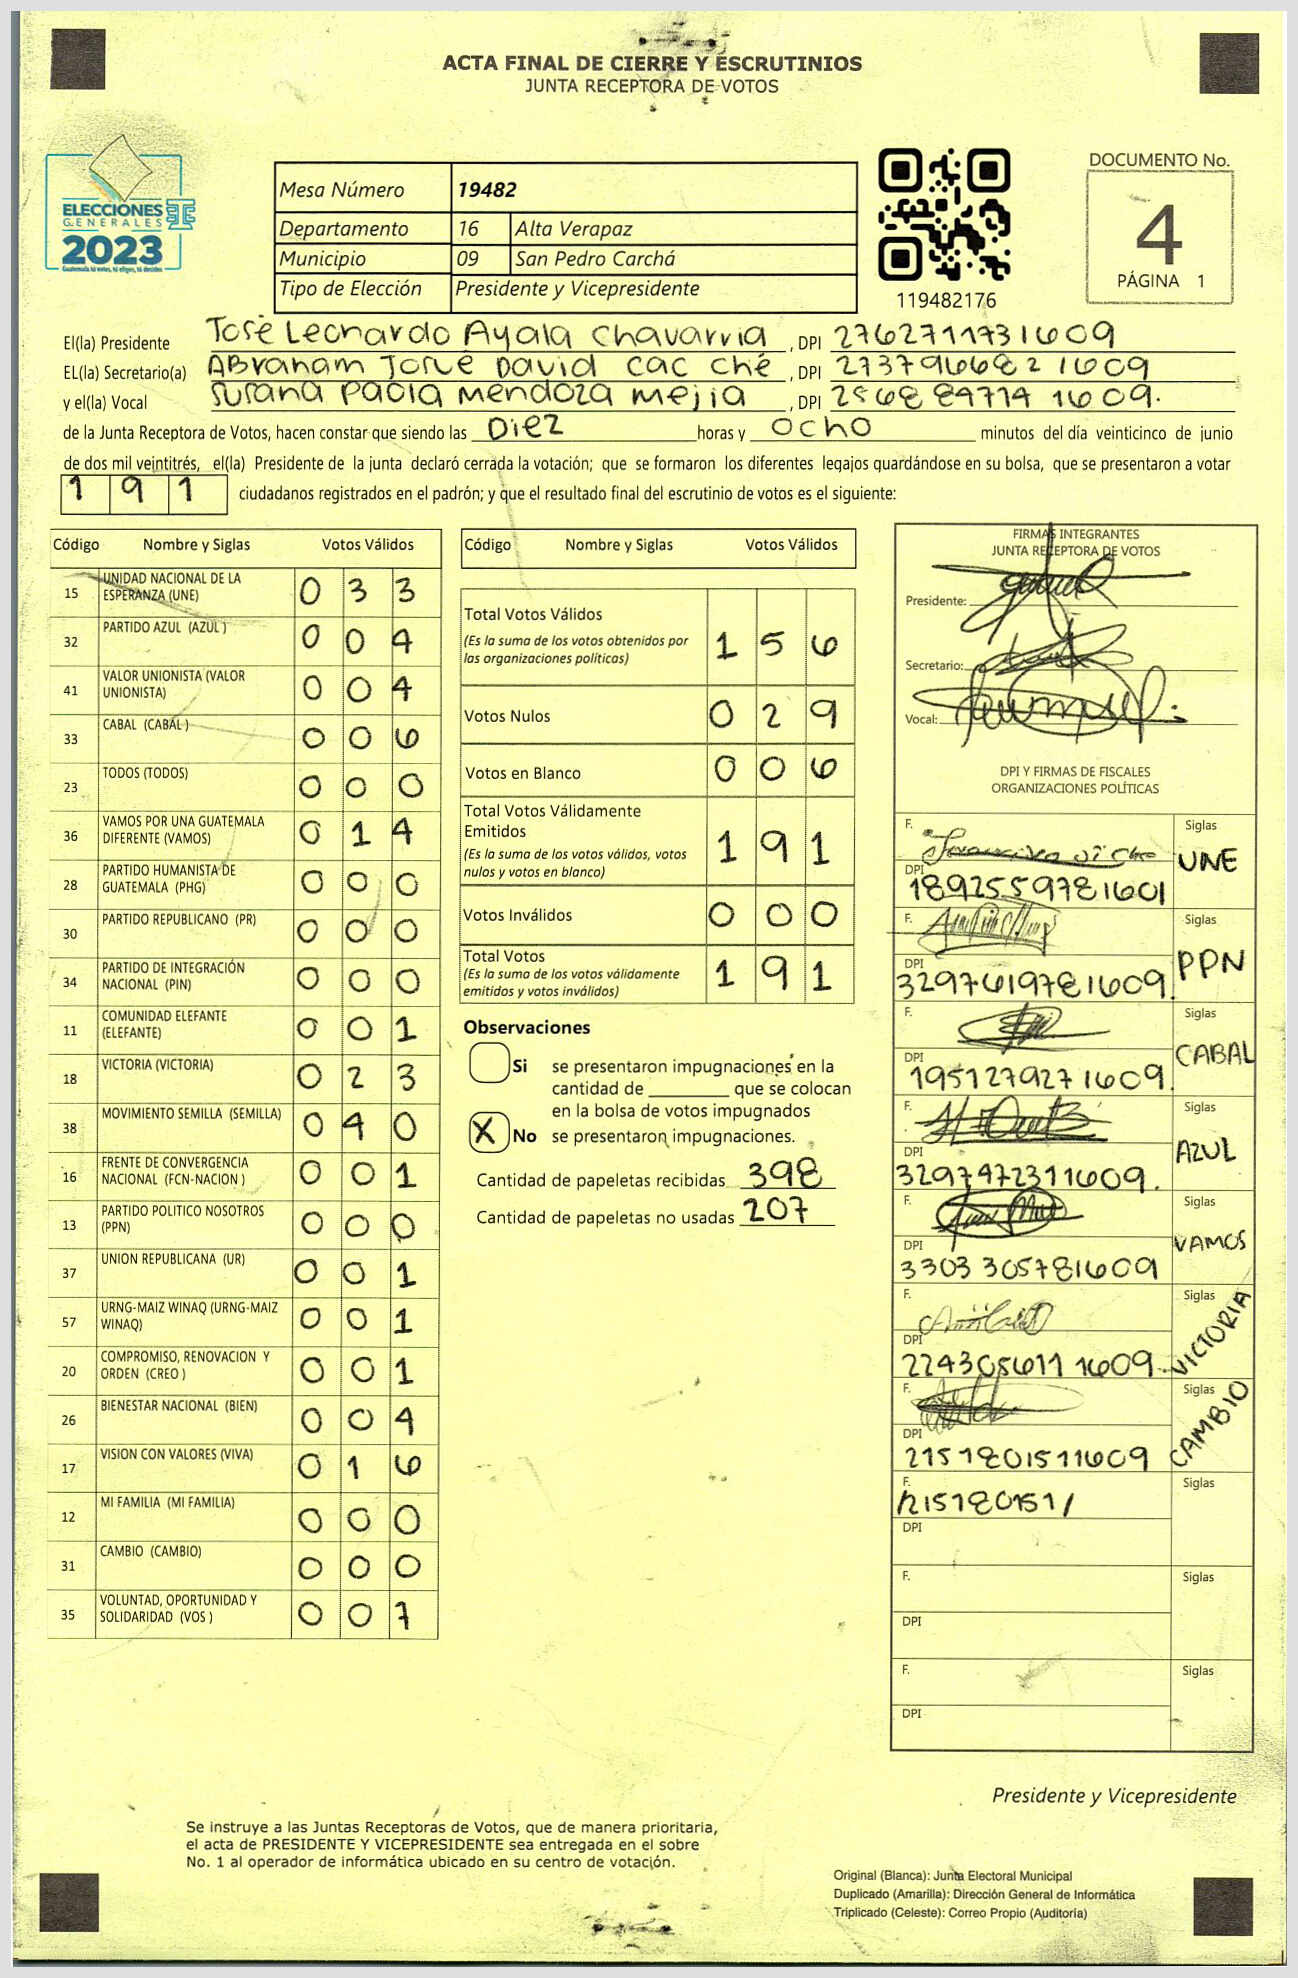 ACTA FINAL DE CIERRE Y ESCRUTINIOS
JUNTA RECEPTORA DE VOTOS
ELECCIONES
GENERALES
2023
Guatemala tú votas, tú eliges, tú decides
Mesa Número 19482
Departamento 16 Alta Verapaz
Municipio 09 San Pedro Carchá
Tipo de Elección Presidente y Vicepresidente
119482176
DOCUMENTO No.
4
PÁGINA 1
El(la) Presidente José Leonardo Ayala Chavarria , DPI 2762711731609
EL(la) Secretario(a) Abraham Josué David Cac Ché , DPI 2737966821609
y el(la) Vocal Susana Paola Mendoza Mejia , DPI 2568897741609.
de la Junta Receptora de Votos, hacen constar que siendo las Diez horas y ocho minutos del día veinticinco de junio
de dos mil veintitrés, el(la) Presidente de la junta declaró cerrada la votación; que se formaron los diferentes legajos guardándose en su bolsa, que se presentaron a votar
1 9 1 ciudadanos registrados en el padrón; y que el resultado final del escrutinio de votos es el siguiente:
Código Nombre y Siglas Votos Válidos
15 UNIDAD NACIONAL DE LA ESPERANZA (UNE) 0 3 3
32 PARTIDO AZUL (AZUL ) 0 0 4
41 VALOR UNIONISTA (VALOR UNIONISTA) 0 0 4
33 CABAL (CABAL ) 0 0 6
23 TODOS (TODOS) 0 0 0
36 VAMOS POR UNA GUATEMALA DIFERENTE (VAMOS) 0 1 4
28 PARTIDO HUMANISTA DE GUATEMALA (PHG) 0 0 0
30 PARTIDO REPUBLICANO (PR) 0 0 0
34 PARTIDO DE INTEGRACIÓN NACIONAL (PIN) 0 0 0
11 COMUNIDAD ELEFANTE (ELEFANTE) 0 0 1
18 VICTORIA (VICTORIA) 0 2 3
38 MOVIMIENTO SEMILLA (SEMILLA) 0 4 0
16 FRENTE DE CONVERGENCIA NACIONAL (FCN-NACION ) 0 0 1
13 PARTIDO POLITICO NOSOTROS (PPN) 0 0 0
37 UNION REPUBLICANA (UR) 0 0 1
57 URNG-MAIZ WINAQ (URNG-MAIZ WINAQ) 0 0 1
20 COMPROMISO, RENOVACION Y ORDEN (CREO ) 0 0 1
26 BIENESTAR NACIONAL (BIEN) 0 0 4
17 VISION CON VALORES (VIVA) 0 1 6
12 MI FAMILIA (MI FAMILIA) 0 0 0
31 CAMBIO (CAMBIO) 0 0 0
35 VOLUNTAD, OPORTUNIDAD Y SOLIDARIDAD (VOS ) 0 0 7
Código Nombre y Siglas Votos Válidos
Total Votos Válidos 1 5 6
(Es la suma de los votos obtenidos por
las organizaciones políticas)
Votos Nulos 0 2 9
Votos en Blanco 0 0 6
Total Votos Válidamente
Emitidos 1 9 1
(Es la suma de los votos válidos, votos
nulos y votos en blanco)
Votos Inválidos 0 0 0
Total Votos 1 9 1
(Es la suma de los votos válidamente
emitidos y votos inválidos)
Observaciones
Si se presentaron impugnaciones en la
cantidad de ________ que se colocan
en la bolsa de votos impugnados
X No se presentaron impugnaciones.
Cantidad de papeletas recibidas 398
Cantidad de papeletas no usadas 207
FIRMAS INTEGRANTES
JUNTA RECEPTORA DE VOTOS
Presidente:
Secretario:
Vocal:
DPI Y FIRMAS DE FISCALES
ORGANIZACIONES POLÍTICAS
F. Siglas
DPI 1892559781601 UNE
F. Siglas
DPI 3297619781609. PPN
F. Siglas
DPI 1951279271609. CABAL
F. Siglas
DPI 3297472311609. AZUL
F. Siglas
DPI 3303305781609 VAMOS
F. Siglas
DPI 2243056111609. VICTORIA
F. Siglas
DPI 2151801511609 CAMBIO
F. 215180151/ Siglas
DPI
F. Siglas
DPI
F. Siglas
DPI
Presidente y Vicepresidente
Se instruye a las Juntas Receptoras de Votos, que de manera prioritaria,
el acta de PRESIDENTE Y VICEPRESIDENTE sea entregada en el sobre
No. 1 al operador de informática ubicado en su centro de votación.
Original (Blanca): Junta Electoral Municipal
Duplicado (Amarilla): Dirección General de Informática
Triplicado (Celeste): Correo Propio (Auditoría)